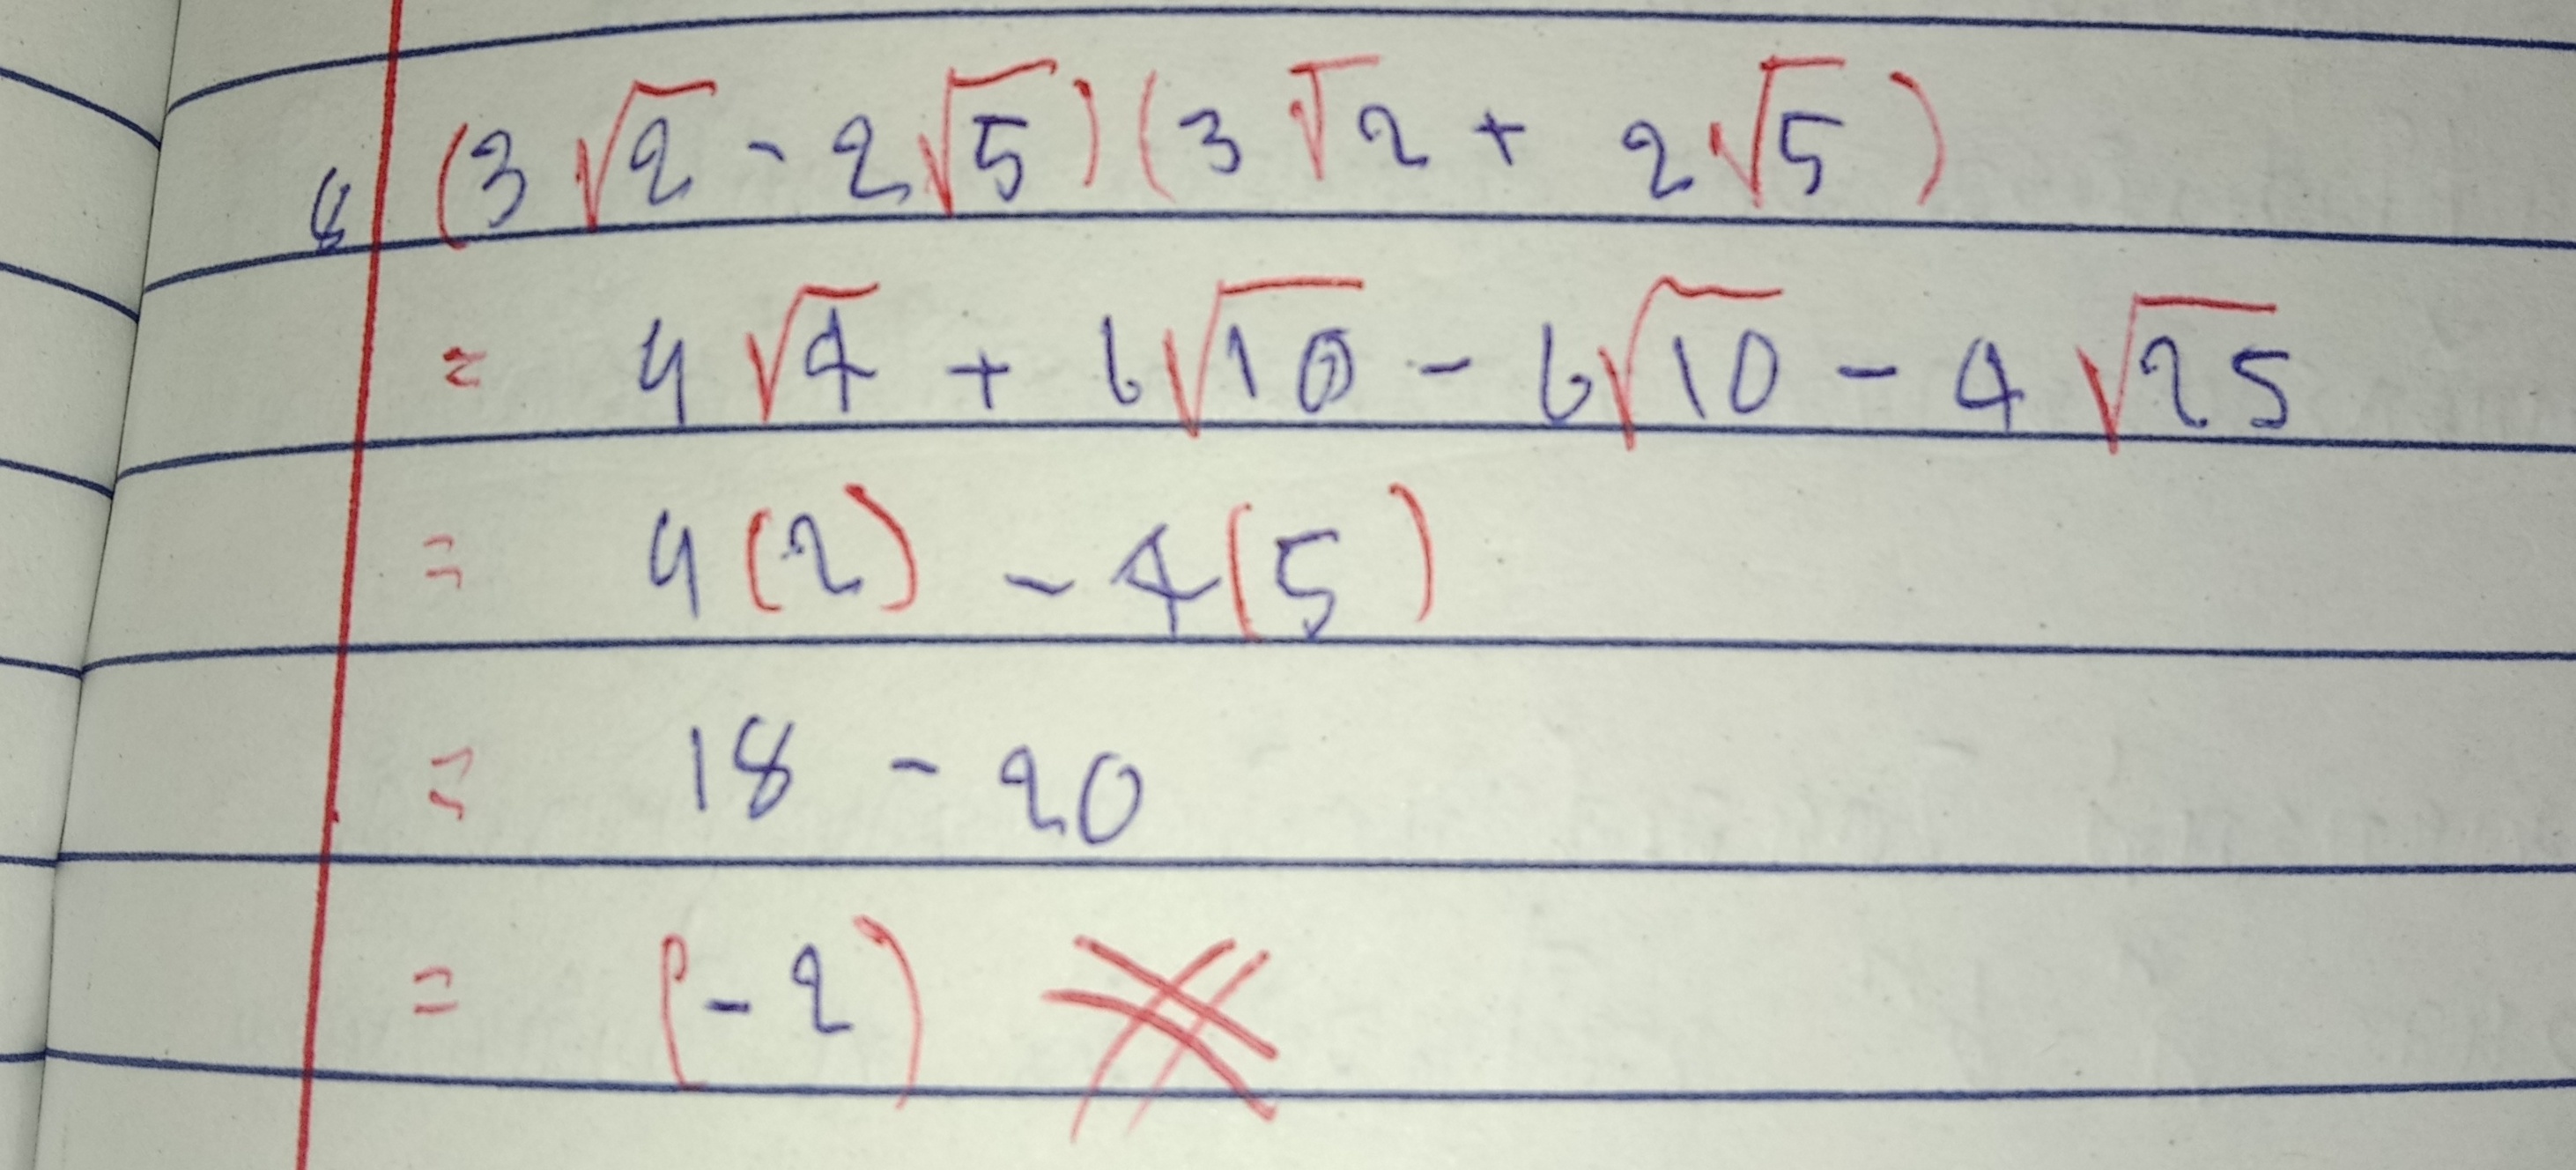 8 (3√2 - 2√5)(3√2 + 2√5)
= 9√4 + 6√10 - 6√10 - 4√25
= 9(2) - 4(5)
= 18 - 20
= (-2)